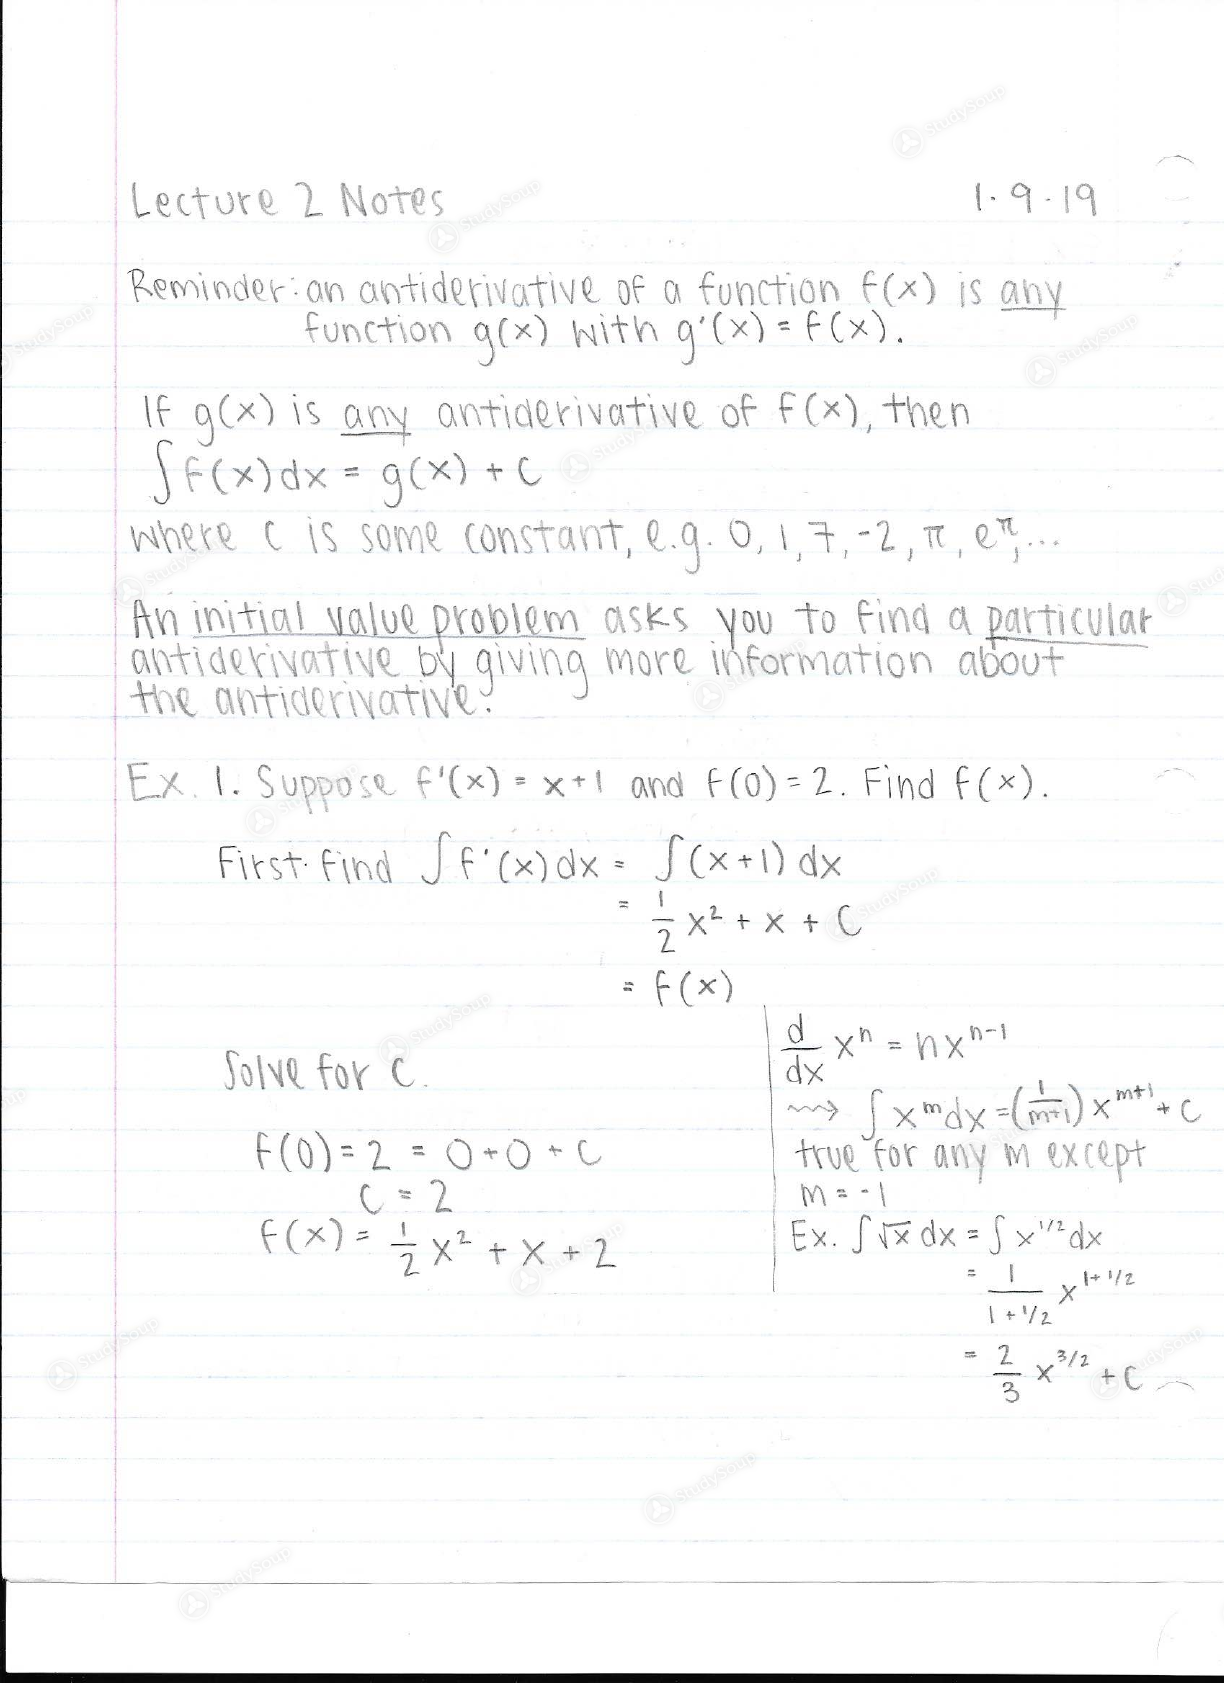 Lecture 2 Notes 1.9.19
Reminder: an antiderivative of a function f(x) is any
function g(x) with g'(x) = f(x).
If g(x) is any antiderivative of f(x), then
∫f(x)dx = g(x) + C
where C is some constant, e.g. 0, 1, 7, -2, π, e^π, ...
An initial value problem asks you to find a particular
antiderivative by giving more information about
the antiderivative.
Ex. 1. Suppose f'(x) = x+1 and f(0) = 2. Find f(x).
First find ∫f'(x)dx = ∫(x+1) dx
= 1/2 x² + x + C
= f(x)
Solve for C.
f(0) = 2 = 0 + 0 + C
C = 2
f(x) = 1/2 x² + x + 2
d/dx xⁿ = nx^(n-1)
⇝ ∫x^m dx = (1/(m+1)) x^(m+1) + C
true for any m except
m = -1
Ex. ∫√x dx = ∫x^(1/2) dx
= 1/(1+1/2) x^(1+1/2)
= 2/3 x^(3/2) + C
StudySoup